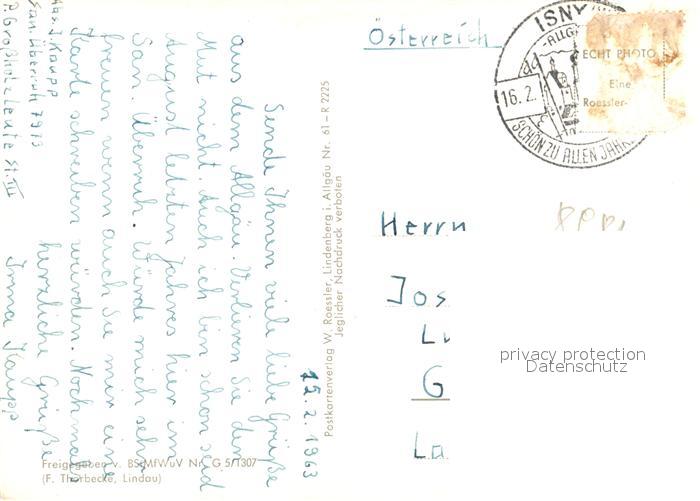 15.2.1963
Sende Ihnen viele liebe Grüße
aus dem Allgäu. Verlieren Sie den
Mut nicht. Auch ich bin schon seid
August letzten Jahres hier im
San. Überruh. Würde mich sehr
freuen wenn auch Sie mir eine
Karte schreiben würden. Nochmals
herzliche Grüße
Irma Kaupp
Abs. I. Kaupp
San. Überruh 7973
P. Großholzleute St. III
Postkartenverlag W. Roessler, Lindenberg i. Allgäu Nr. 61–R 2225
Jeglicher Nachdruck verboten
Freigegeben v. BS MfWuV Nr. G 5/1307
(F. Thorbecke, Lindau)
Österreich
ISNY
ALLG
16.2.
SCHÖN ZU ALLEN JAHR
ECHT PHOTO
Eine
Roessler-
Herrn
Jos
L
G
La
privacy protection
Datenschutz